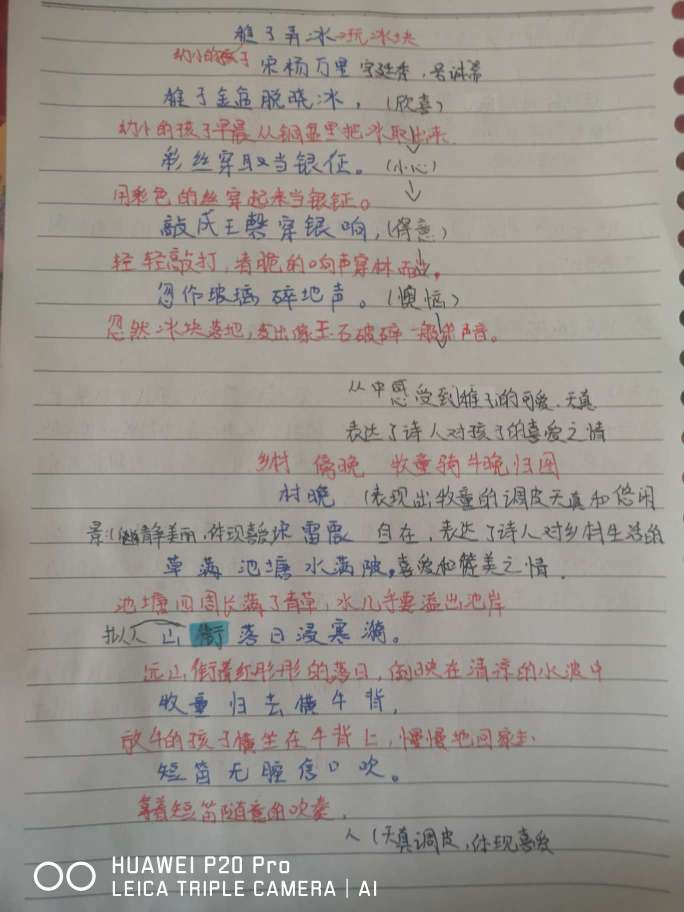 稚子弄冰→玩冰块
幼小的孩子 宋杨万里 字廷秀，号诚斋
稚子金盆脱晓冰，(欣喜)
幼小的孩子早晨从铜盆里把冰取出来
彩丝穿取当银钲。(小心)
用彩色的丝穿起来当银钲。
敲成玉磬穿银响，(得意)
轻轻敲打，清脆的响声穿林而过。
忽作玻璃碎地声。(懊恼)
忽然冰块落地，发出像玉石破碎一般声音。
从中感受到稚子的可爱、天真
表达了诗人对孩子的喜爱之情
乡村 傍晚 牧童骑牛晚归图
村晚 (表现出牧童的调皮天真和悠闲
景(幽静美丽，体现喜爱 宋 雷震 自在，表达了诗人对乡村生活的
草满池塘水满陂，喜爱和赞美之情.
池塘四周长满了青草，水几乎要溢出池岸
拟人 山衔落日浸寒漪。
远山衔着红彤彤的落日，倒映在清凉的水波中
牧童归去横牛背，
放牛的孩子横坐在牛背上，慢慢地回家去
短笛无腔信口吹。
拿着短笛随意的吹奏.
人(天真调皮，体现喜爱
HUAWEI P20 Pro
LEICA TRIPLE CAMERA | AI